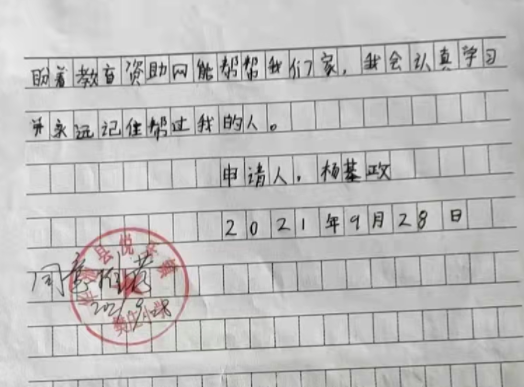 盼着教育资助网能帮帮我们家,我会认真学习
并永远记住帮过我的人。
申请人,杨基政
2021年9月28日
同意
2021.9.28